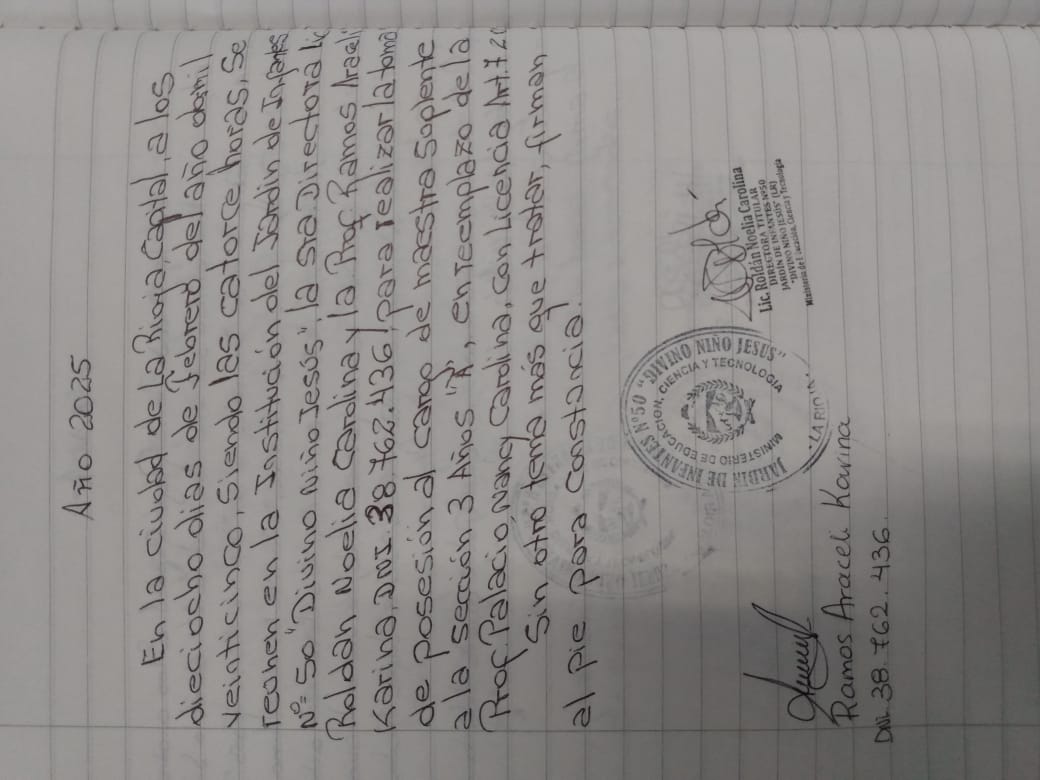 Año 2025
En la ciudad de La Rioja, Capital, a los
dieciocho dias de febrero del año dosmil
veinticinco, siendo las catorce horas, se
reúnen en la Institución del Jardin de Infantes
Nº= 50 "Divino Niño Jesús", la Sra Directora Lic
Roldán Noelia Carolina y la Prof. Ramos Araceli
Karina, DNI. 38.762.436, para realizar la toma
de posesión al cargo de maestra Suplente
a la sección 3 Años "A", en reemplazo de la
Prof. Palacio Nancy Carolina, con Licencia Art. 7.20
Sin otro tema más que tratar, firman
al pie para constancia.
Ramos Araceli Karina
DNI. 38.762.436.
JARDIN DE INFANTES Nº50 "DIVINO NIÑO JESUS"
MINISTERIO DE EDUCACION, CIENCIA Y TECNOLOGIA
LA RIOJA
Lic. Roldán Noelia Carolina
DIRECTORA TITULAR
JARDIN DE INFANTES Nº50
"DIVINO NIÑO JESUS" (LR)
Ministerio de Educación, Ciencia y Tecnología